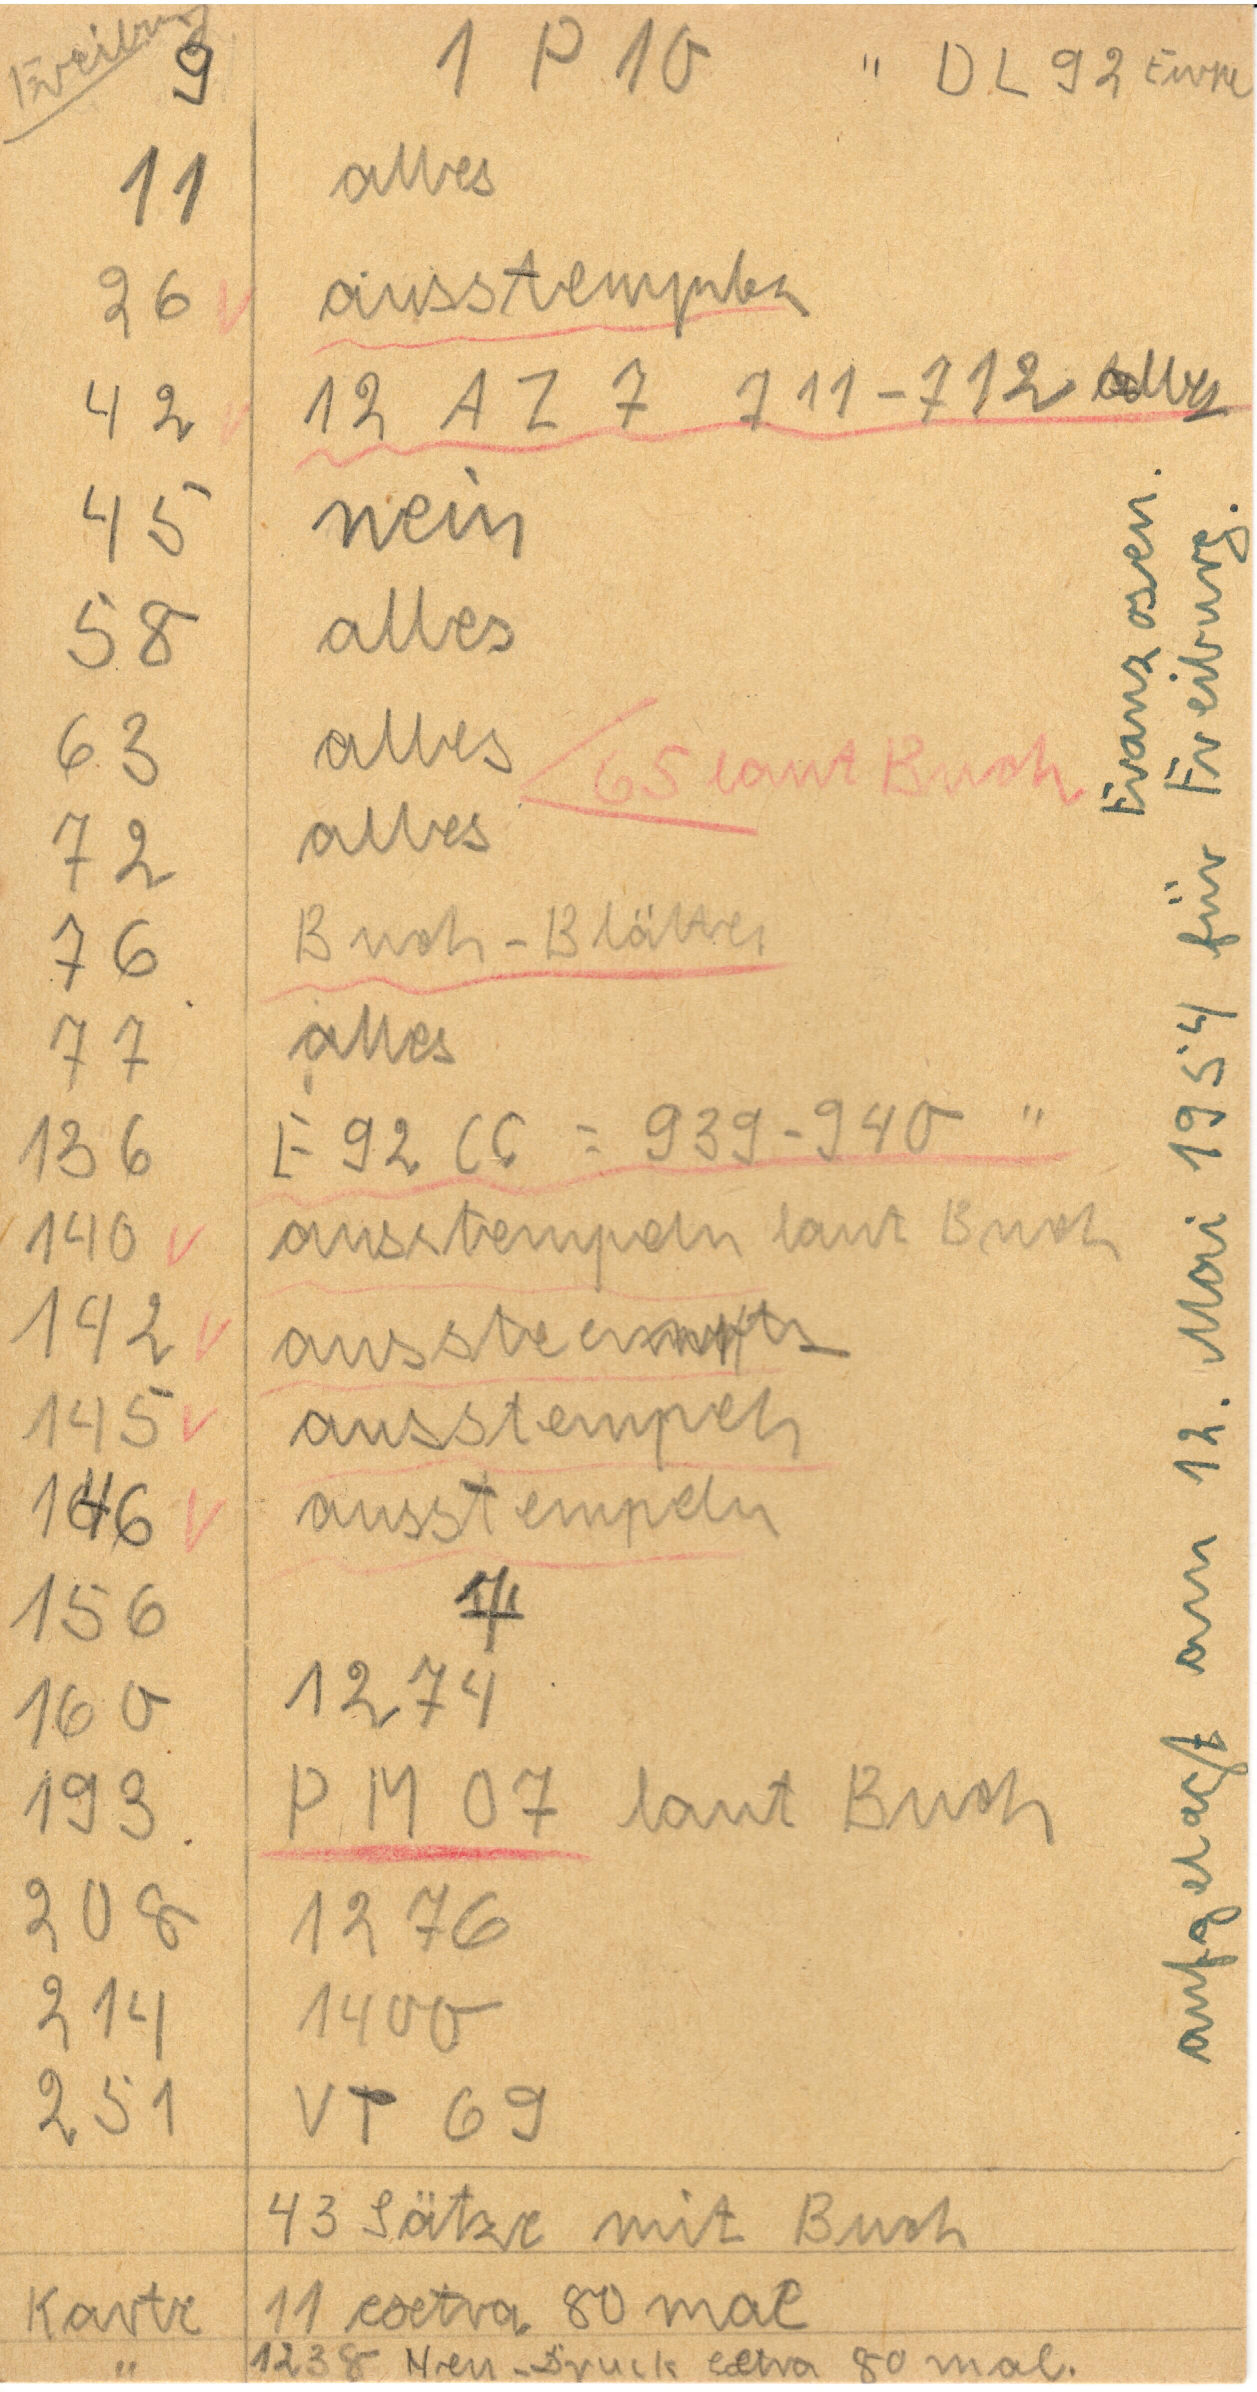 Freiburg
9 1 P 10 " DL 92
11 alles
26 v ausstempeln
42 v 12 AZ 7 711-712 alles
45 nein
58 alles
63 alles
65 laut Buch
72 alles
76 Buch-Blätter
77 alles
136 E 92 CC = 939-940 "
140 v ausstempeln laut Buch
142 v
145 v ausstempeln
146 v ausstempeln
156
160 1274
193 PM 07 laut Buch
208 1276
214 1400
251 VT 69
43 Sätze mit Buch
Karte 11 extra 80 mal
" 1238 Neu-Druck extra 80 mal.
Franzosen.
am 12. Mai 1954 für Freiburg.